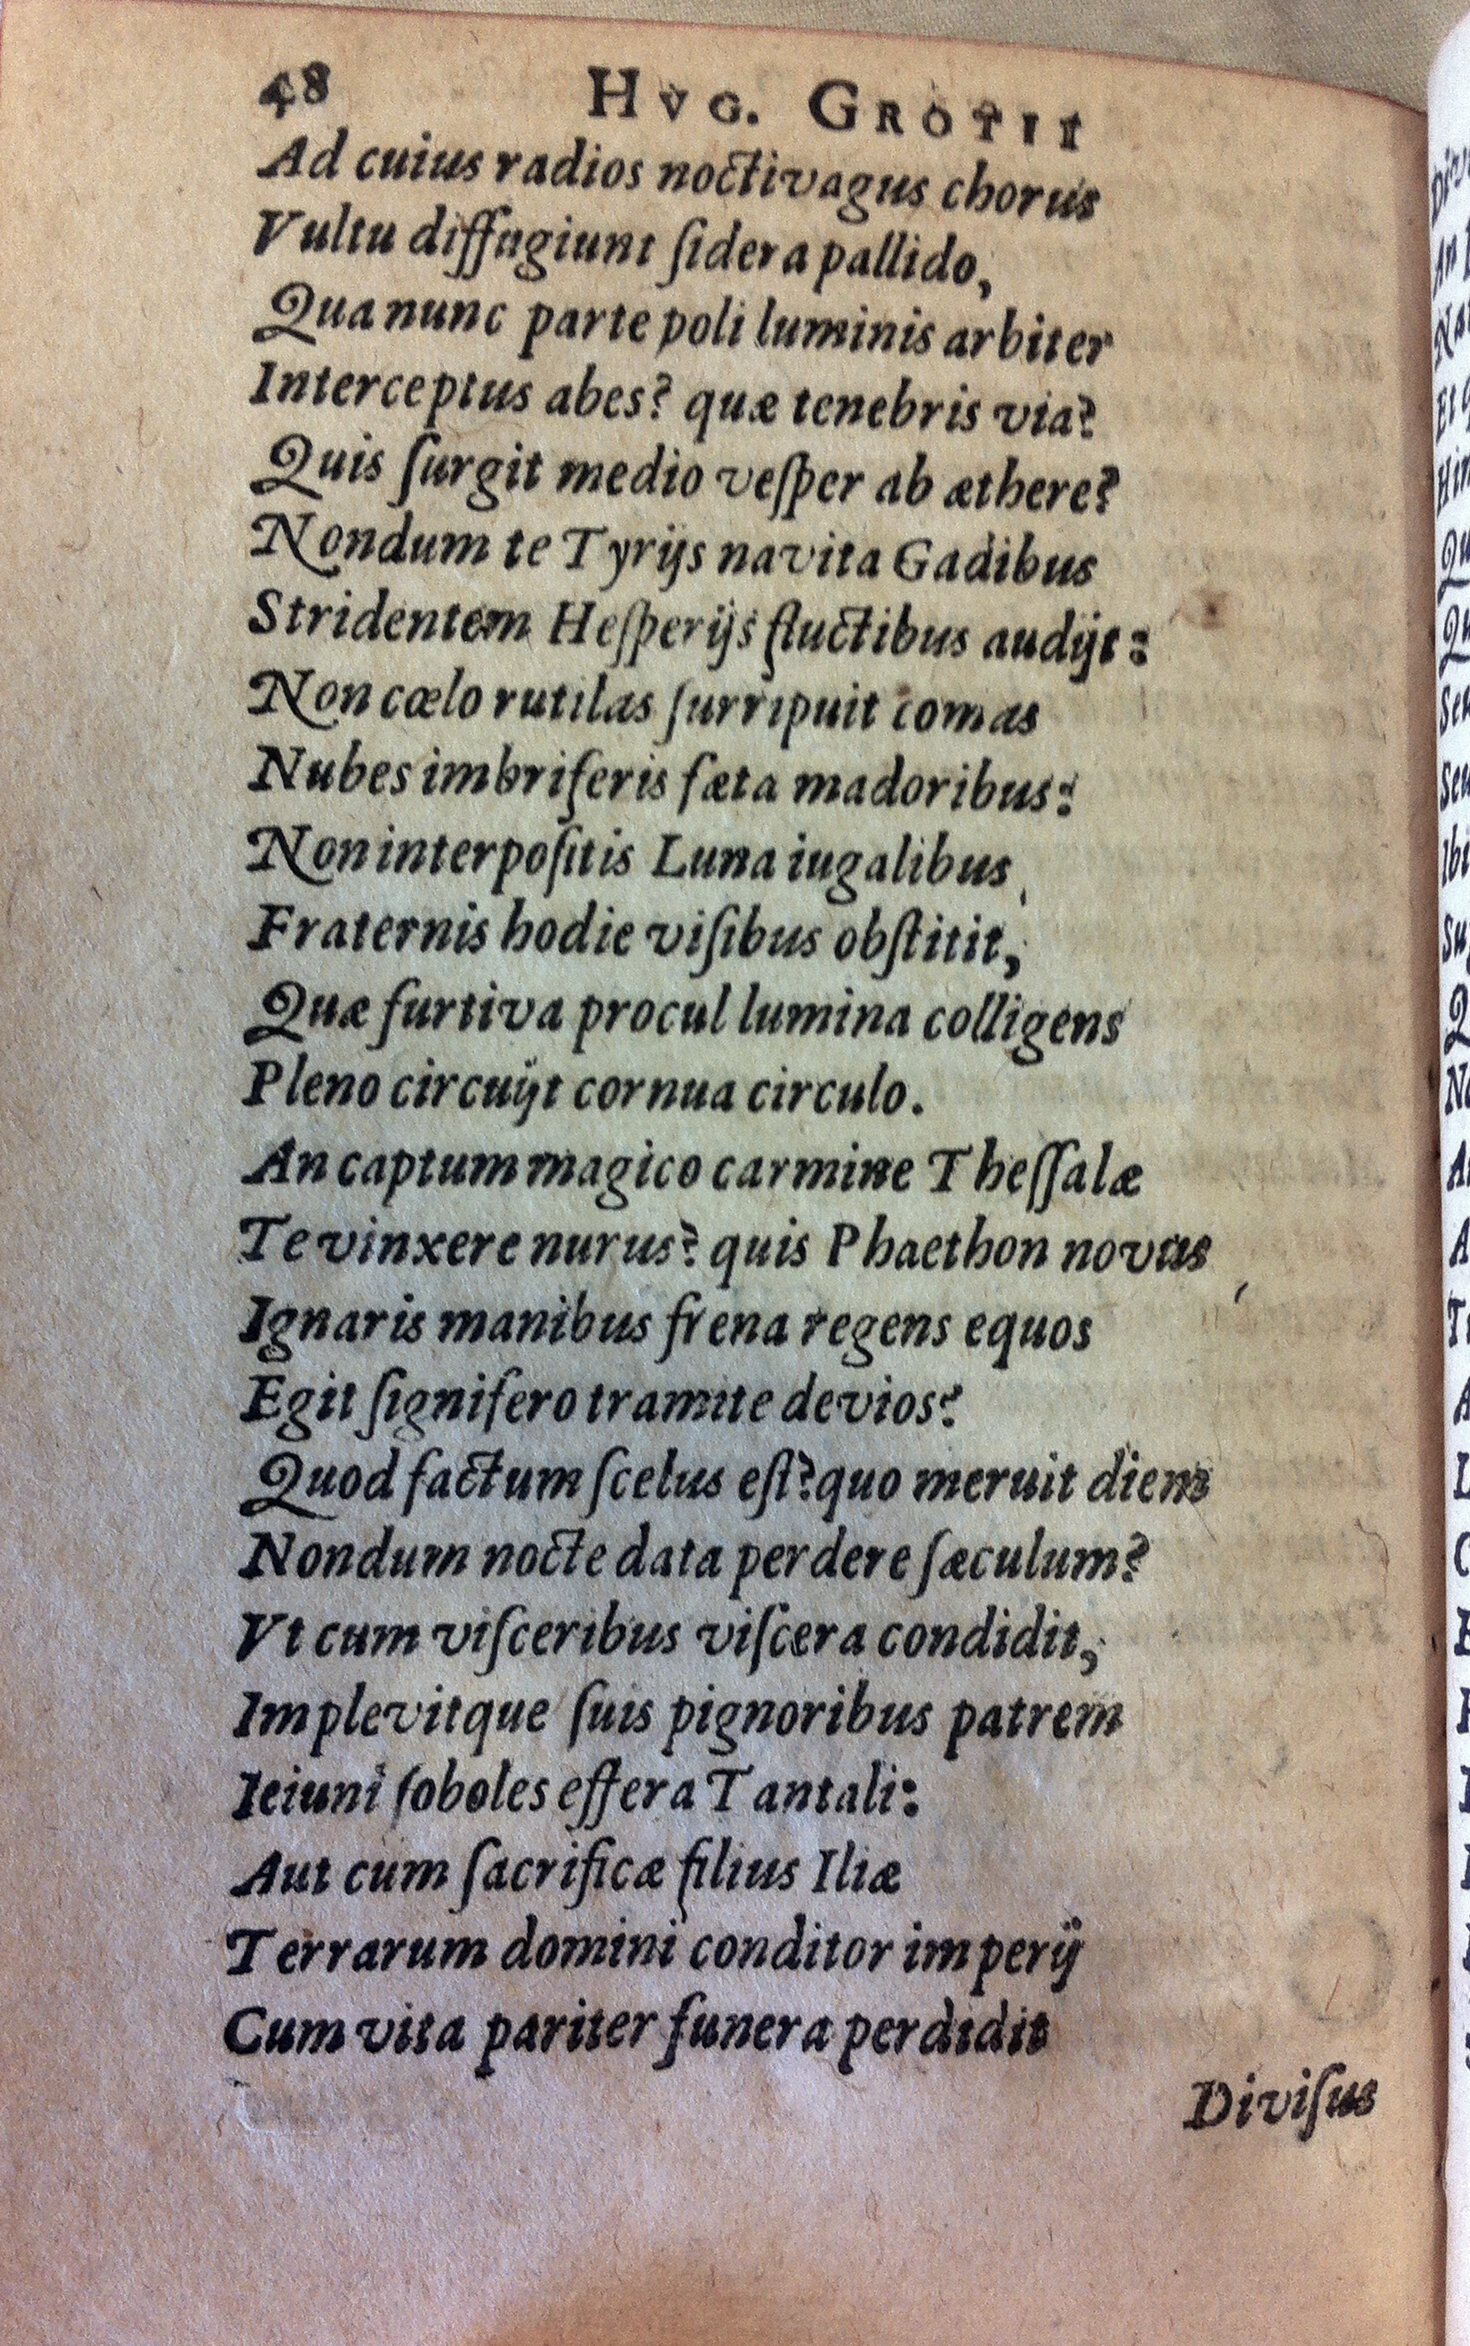 48 HVG. GROTII
Ad cuius radios noctivagus chorus
Vultu diffugiunt ſidera pallido,
Qua nunc parte poli luminis arbiter
Interceptus abes? quæ tenebris via?
Quis ſurgit medio veſper ab æthere?
Nondum te Tyrijs navita Gadibus
Stridentem Heſperijs fluctibus audijt:
Non cœlo rutilas ſurripuit comas
Nubes imbriferis fæta madoribus:
Non interpoſitis Luna iugalibus
Fraternis hodie viſibus obſtitit,
Quæ furtiva procul lumina colligens
Pleno circuijt cornua circulo.
An captum magico carmine Theſſalæ
Te vinxere nurus? quis Phaethon novus
Ignaris manibus frena regens equos
Egit ſignifero tramite devios?
Quod factum ſcelus eſt? quo meruit diem
Nondum nocte data perdere ſæculum?
Vt cum viſceribus viſcera condidit,
Implevitque ſuis pignoribus patrem
Ieiuni ſoboles effera Tantali:
Aut cum ſacrificæ filius Iliæ
Terrarum domini conditor imperij
Cum vita pariter funera perdidit
Diviſus